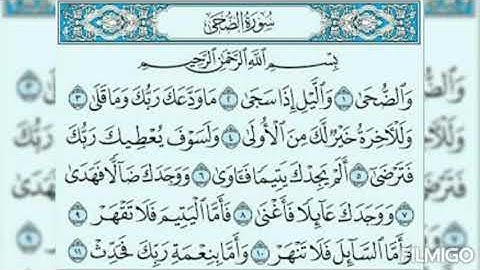 سُورَةُ الضُّحَىٰ
بِسْمِ اللَّهِ الرَّحْمَٰنِ الرَّحِيمِ
وَالضُّحَىٰ ١ وَاللَّيْلِ إِذَا سَجَىٰ ٢ مَا وَدَّعَكَ رَبُّكَ وَمَا قَلَىٰ ٣
وَلَلْآخِرَةُ خَيْرٌ لَّكَ مِنَ الْأُولَىٰ ٤ وَلَسَوْفَ يُعْطِيكَ رَبُّكَ
فَتَرْضَىٰ ٥ أَلَمْ يَجِدْكَ يَتِيمًا فَآوَىٰ ٦ وَوَجَدَكَ ضَالًّا فَهَدَىٰ
٧ وَوَجَدَكَ عَائِلًا فَأَغْنَىٰ ٨ فَأَمَّا الْيَتِيمَ فَلَا تَقْهَرْ ٩
وَأَمَّا السَّائِلَ فَلَا تَنْهَرْ ١٠ وَأَمَّا بِنِعْمَةِ رَبِّكَ فَحَدِّثْ ١١
FILMIGO